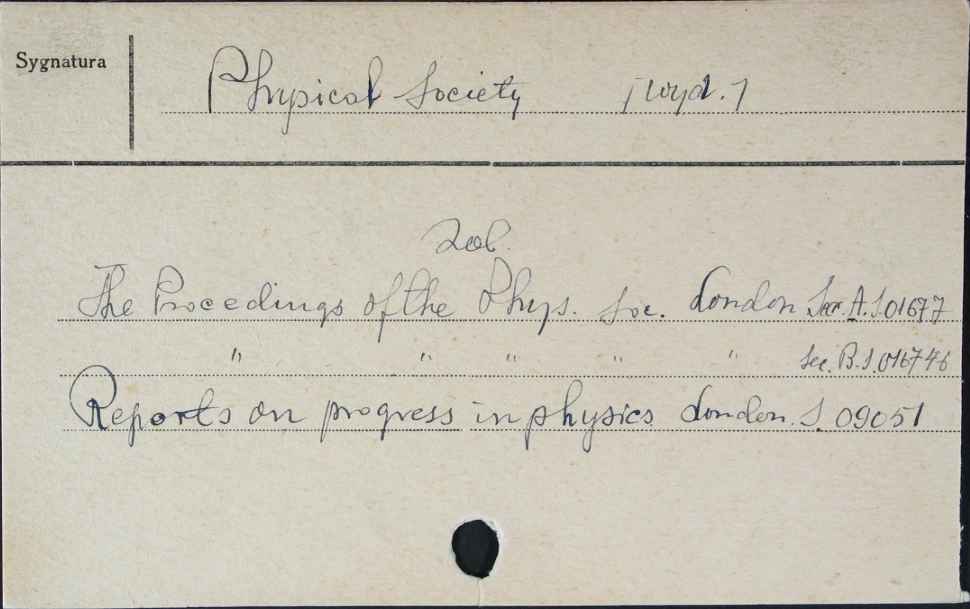 Sygnatura
Physical Society [wyd.]
Zob.
The Procedings of the Phys. Soc. London Sec. A. S. 01677
" " " " " Sec. B. S. 016746
Reports on progress in physics London. S. 09051